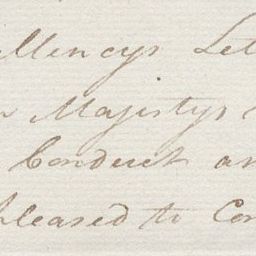 llencys Let
Majestys
Conduct an
pleased to Con